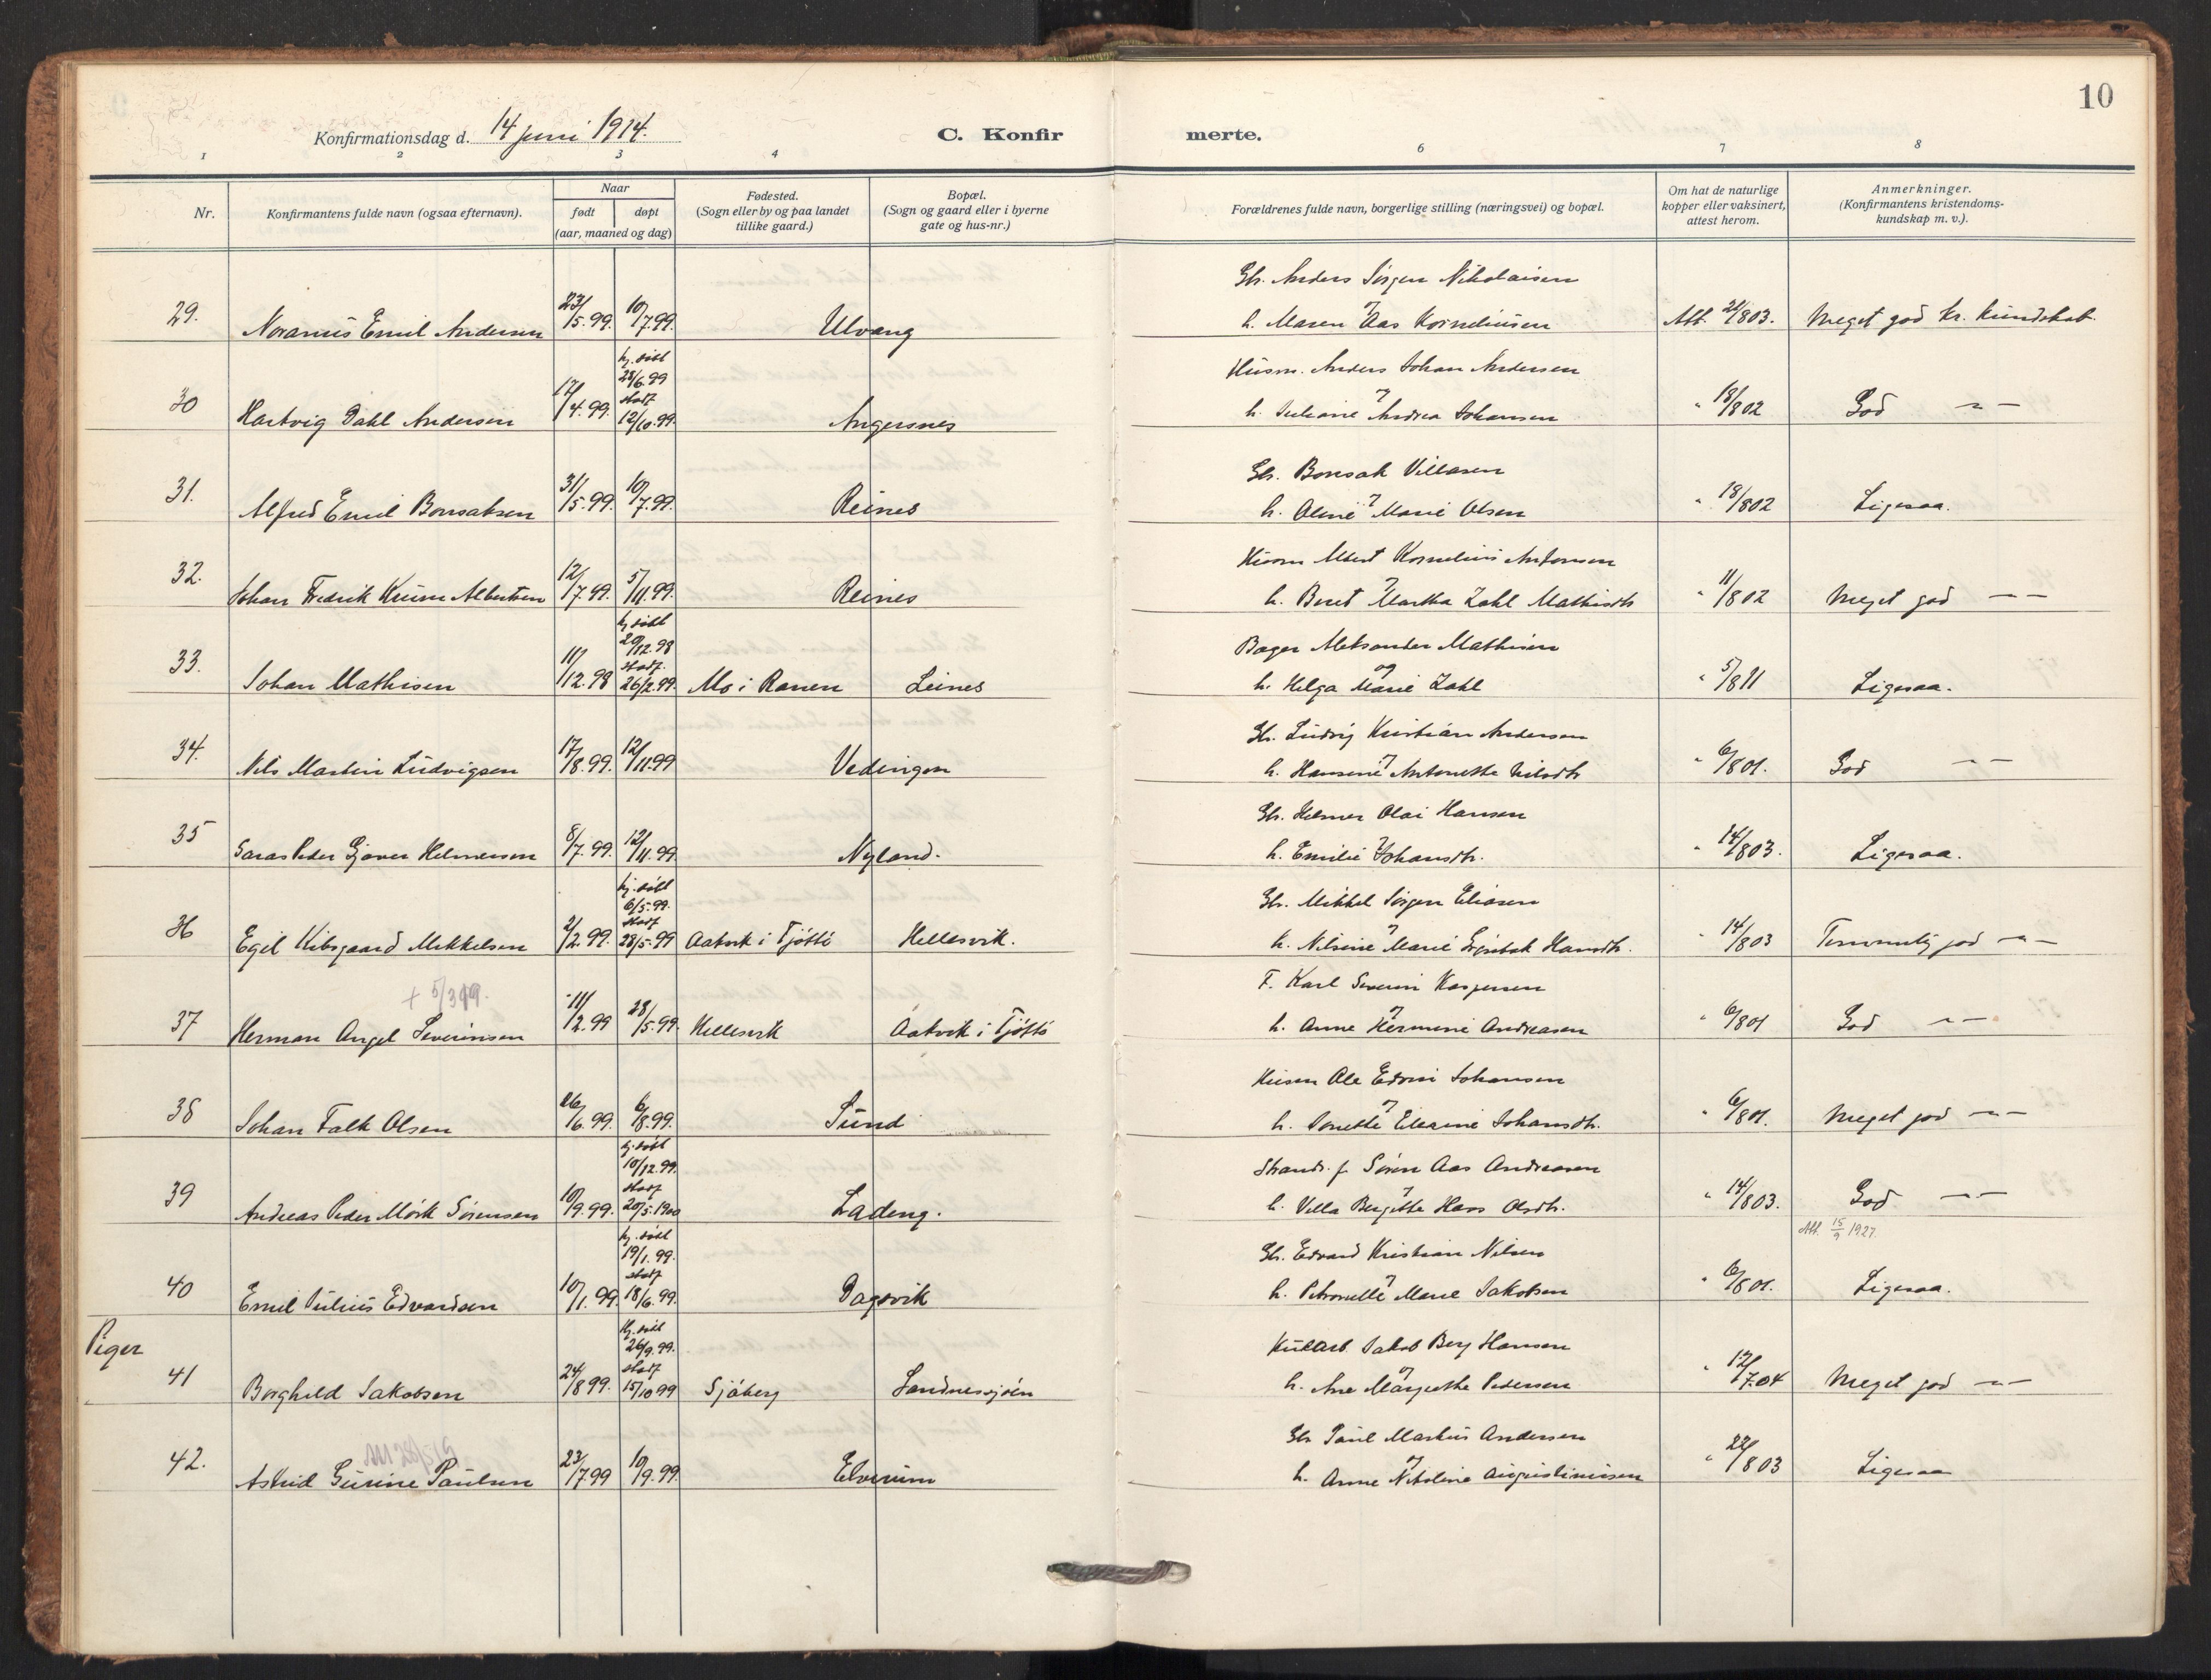 10
Konfirmationsdag d. 14 juni 1914.
C. Konfirmerte.
1 2 3 4 6 7 8
Nr.
Konfirmantens fulde navn (ogsaa efternavn).
Naar
født
døpt
(aar, maaned og dag)
Fødested.
(Sogn eller by og paa landet
tillike gaard.)
Bopæl.
(Sogn og gaard eller i byerne
gate og hus-nr.)
Forældrenes fulde navn, borgerlige stilling (næringsvei) og bopæl.
Om hat de naturlige
kopper eller vaksinert,
attest herom.
Anmerkninger.
(Konfirmantens kristendoms-
kundskap m. v.).
Gbr. Anders Jørgen Nikolaisen
og
29. Noranus Emil Andersen 23/5.99. 10/7.99. Ulvang h. Maren Aas Kornelius­en Att. 21/803. Meget god kr. kundskab.
hj. døbt
28/6.99
stadf
Husm. Anders Johan Andersen
og
30 Hartvig Dahl Andersen 17/4.99. 12/10.99. Angersnes h. Juliane Andrea Johansen " 18/802 God — " —
Gbr. Bonsak Villasen
og
31. Alfred Emil Bonsaksen 31/5.99. 10/7.99. Reines h. Oline Marie Olsen " 18/802 Ligesaa.
Husm Albert Kornelius Antonsen
og
32. Johan Fredrik Krum Albertsen 12/7.99. 5/11.99. Reines h. Beret Martha Zahl Mathisdtr " 11/802 Meget god — " —
hj. døbt
20/12.98
stadf.
Bager Aleksander Mathisen
og
33. Johan Mathisen 11/12.98 26/2.99. Mo i Ranen Leines h. Helga Marie Zahl " 5/811 Ligesaa.
Gbr. Ludvig Kristian Andersen
og
34. Nils Martin Ludvigsen 17/8.99. 12/11.99 Vedingen h. Hansine Antonette Nilsdtr " 6/801. God — " —
Gbr. Helmer Olai Hansen
og
35 Saras Peder Gjøver Helmersen 8/7.99. 12/11.99. Nyland. h. Emilie Johansdtr. " 14/803. Ligesaa.
hj. døbt
6/5.99.
stadf
Gbr. Mikkel Jørgen Eliasen
og
36 Egil Kibsgaard Mikkelsen 2/2.99. 28/5.99 Aakvik i Tjøttø Hellesvik. h. Nilsine Marie Hansdtr. " 14/803 Temmelig god — " —
+ 5/319.
F. Karl Severin Kaspersen
og
37 Herman Angel Severinsen 11/2.99 28/5.99. Hellesvik Aakvik i Tjøttø h. Anne Hermine Andreasen " 6/801 God — " —
Husm Ole Edvin Johansen
og
38 Johan Falk Olsen 26/6.99. 6/8.99. Sund h. Jonette Eleanne Johansdtr. " 6/801. Meget god — " —
hj. døbt
10/12.99.
stadf
Strands. f. Søren Aas Andreasen
og
39 Andreas Peder Mørk Sørensen 10/9.99. 20/5.1900 Zadeng. h. Villa Bergitte Hass Olsdtr. " 14/803. God — " —
Att. 15/9 1927.
hj. døbt
19/1.99.
stadf
Gbr. Edvard Kristian Nilsen
og
40 Emil Julius Edvardsen 10/1.99. 18/6.99. Dagsvik h. Petronelle Marie Jakobsen " 6/801. Ligesaa.
Piger
Hj. døbt
26/9.99.
stadf
Kullarb. Jakob Berg Hansen
og
41 Borghild Jakobsen 24/8 99. 15/10 99 Sjøberg Sandnessjøen h. Ane Margrethe Pedersen " 12/7.04 Meget god — " —
Gbr Paul Markus Andersen
og
42. Astrid Gurine Paulsen 23/7 99 10/9.99. Elverum h. Anne Nikoline Augustinussen " 22/803 Ligesaa